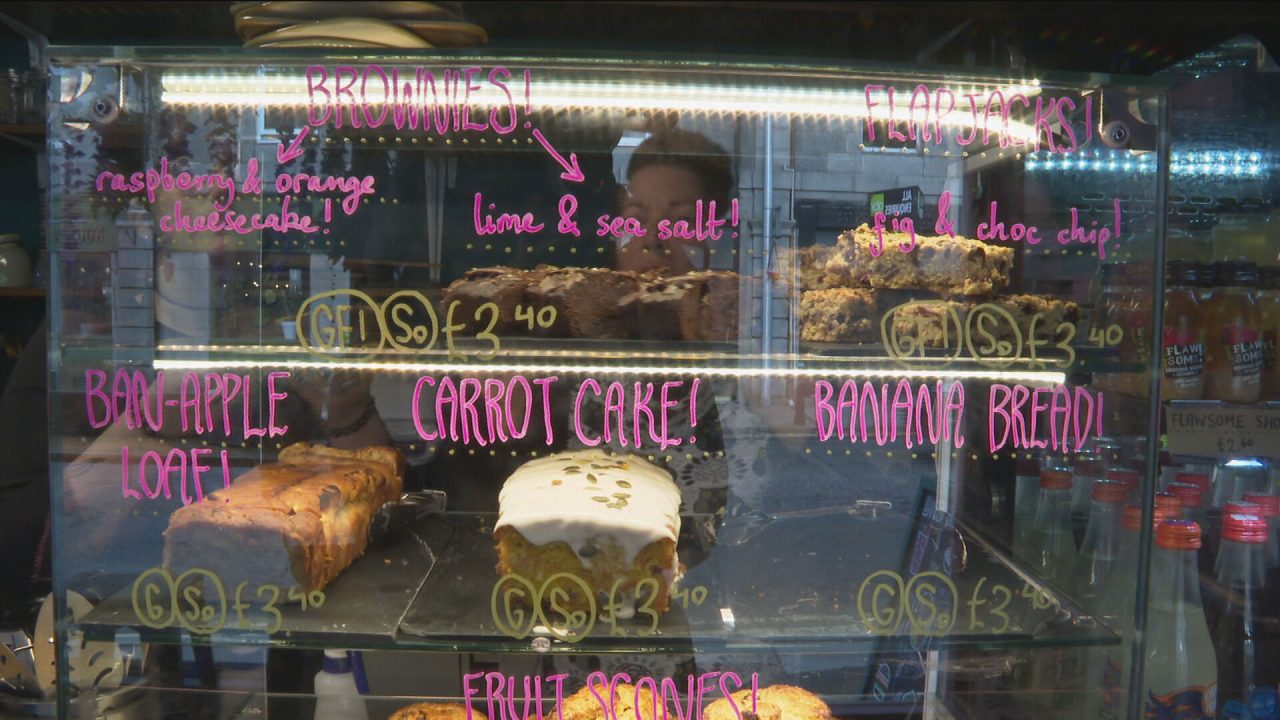 BROWNIES!
FLAPJACKS!
raspberry & orange
cheesecake!
lime & sea salt!
fig & choc chip!
ALL
ENQUIRIES
GF! So £3 40
GF! So £3 40
FLAWSOME
FLAWSOME
BAN-APPLE
LOAF!
CARROT CAKE!
BANANA BREAD!
FLAWSOME
£2 40
G So £3 40
G So £3 40
G So £3 40
FRUIT SCONES!